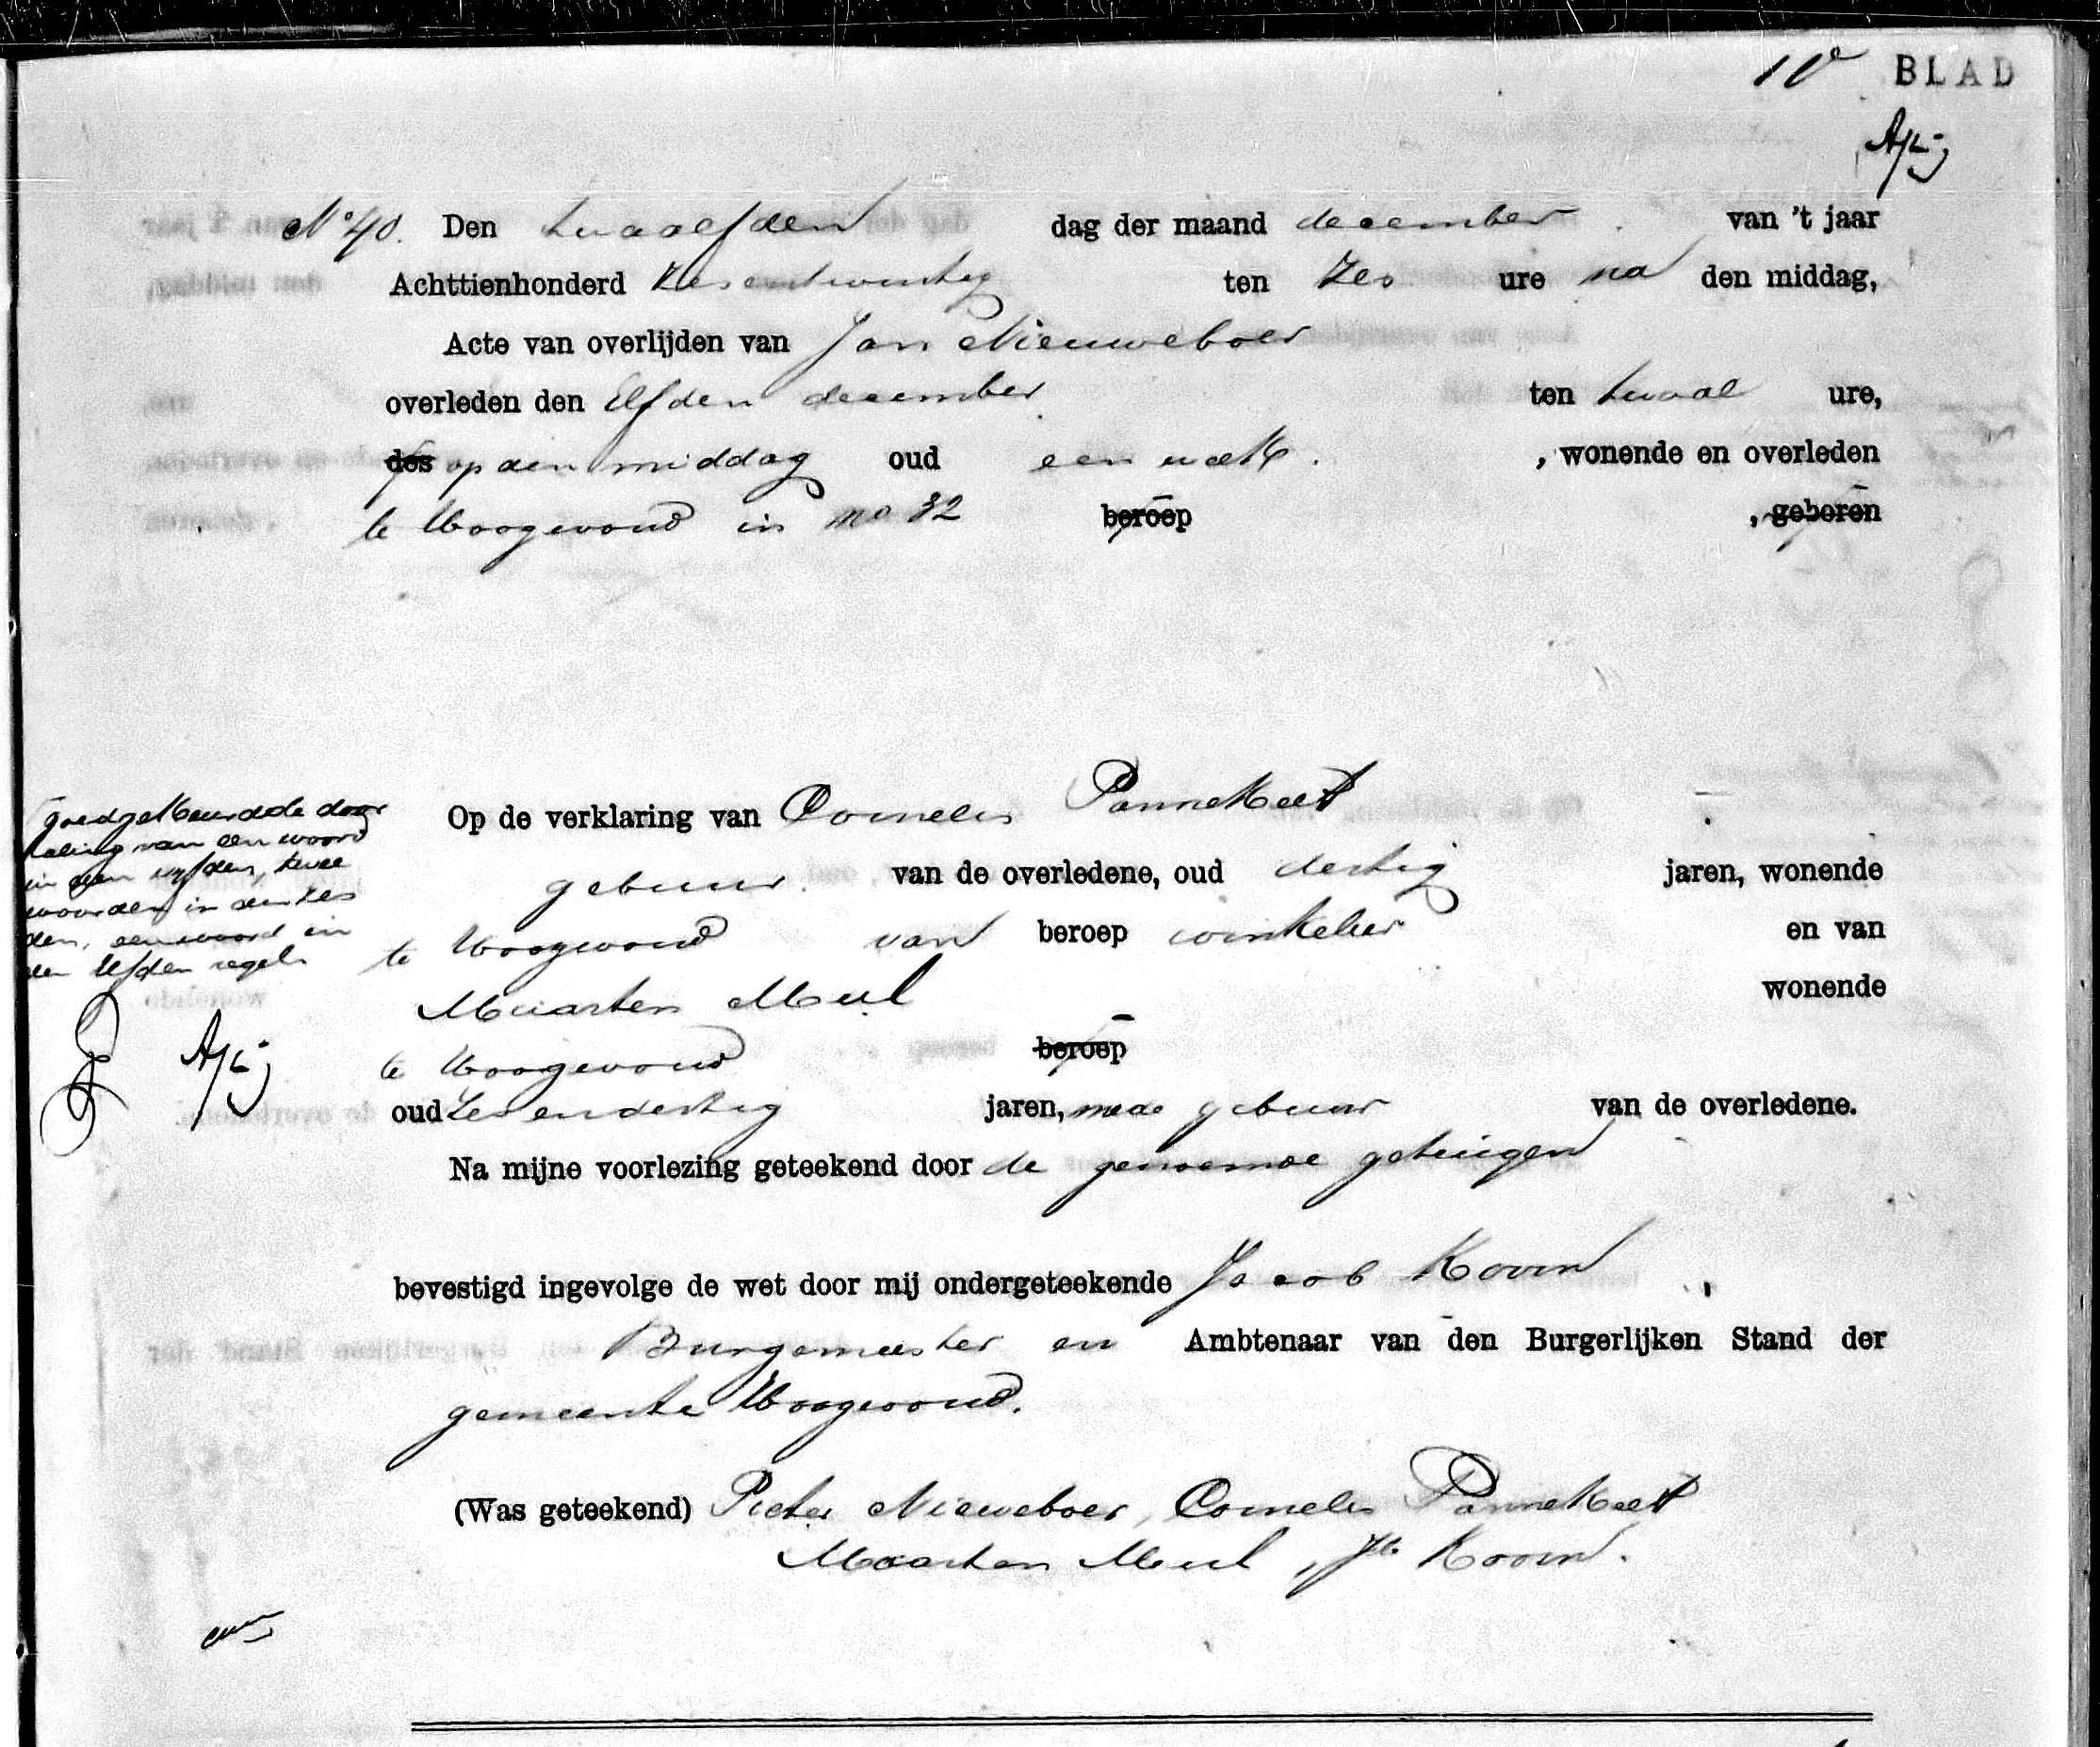 10e BLAD
No 40. Den twaalfden dag der maand december van 't jaar
Achttienhonderd Zesentwintig ten Zes ure na den middag,
Acte van overlijden van Jan Nieuweboer
overleden den Elfden december ten twaal ure,
des op den middag oud een week. , wonende en overleden
te Hoogwoud in no 32 beroep , geboren
Op de verklaring van Cornelis Pannekeet
gebuur van de overledene, oud dertig jaren, wonende
te Hoogwoud van beroep winkelier en van
Maarten Meul wonende
te Hoogwoud beroep
oud Zesendertig jaren, mede gebuur van de overledene.
Na mijne voorlezing geteekend door de genoemde getuigen
bevestigd ingevolge de wet door mij ondergeteekende Jacob Koorn ,
Burgemeester en Ambtenaar van den Burgerlijken Stand der
gemeente Hoogwoud.
(Was geteekend) Pieter Nieweboer, Cornelis Pannekeet
Maarten Meul, Jb Koorn.
goedgekeurd de door
haling van een woord
in den vyfden, twee
woorden in den zes
den, een woord in
den Elfden regel.